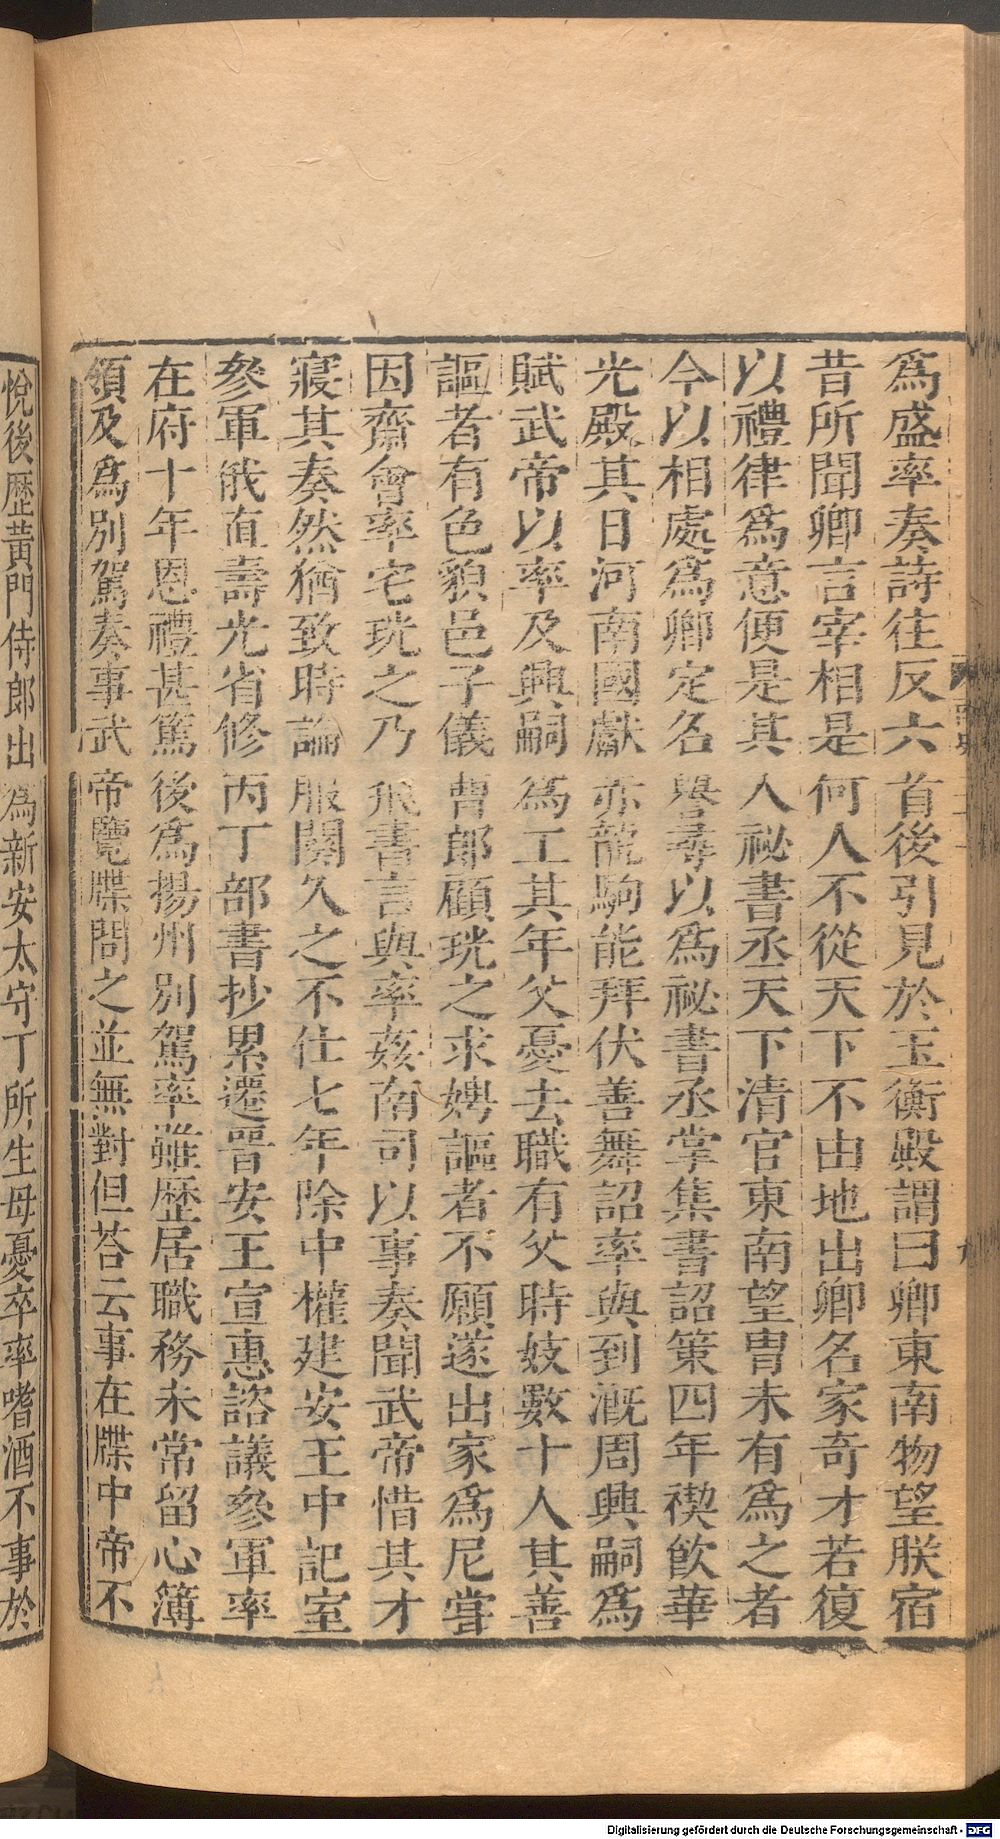 爲盛率奏詩往反六首後引見於玉衡殿謂曰卿東南物望朕宿
昔所聞卿言宰相是何人不從天下不由地出卿名家奇才若復
以禮律爲意便是其人祕書丞天下清官東南望胄未有爲之者
今以相處爲卿定名譽尋以爲祕書丞掌集書詔策四年禊飮華
光殿其日河南國獻赤龍駒能拜伏善舞詔率與到漑周興嗣爲
賦武帝以率及興嗣爲工其年父憂去職有父時妓數十人其善
謳者有色貌邑子儀曹郎顧珖之求娉謳者不願遂出家爲尼嘗
因齋會率宅珖之乃飛書言與率姦南司以事奏聞武帝惜其才
寢其奏然猶致時論服闋久之不仕七年除中權建安王中記室
參軍俄直壽光省修丙丁部書抄累遷晉安王宣惠諮議參軍率
在府十年恩禮甚篤後爲揚州別駕率雖歴居職務未常留心簿
領及爲別駕奏事武帝覽牒問之並無對但荅云事在牒中帝不
悅後歴黃門侍郎出爲新安太守丁所生母憂卒率嗜酒不事於
Digitalisierung gefördert durch die Deutsche Forschungsgemeinschaft - DFG